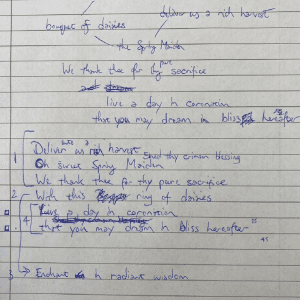 deliver us a rich harvest
bouquet of daisies
the Spring Maiden
We thank thee for thy pure sacrifice
live a day in coronation
that you may dream in bliss hereafter
Deliver unto us a rich harvest
Send thy crimson blessing
1 Oh sweet Spring Maiden
We thank thee for thy pure sacrifice
2 With this ring of daisies
4 Live a day in coronation
that you may dream in bliss hereafter
3 Endure in radiant wisdom